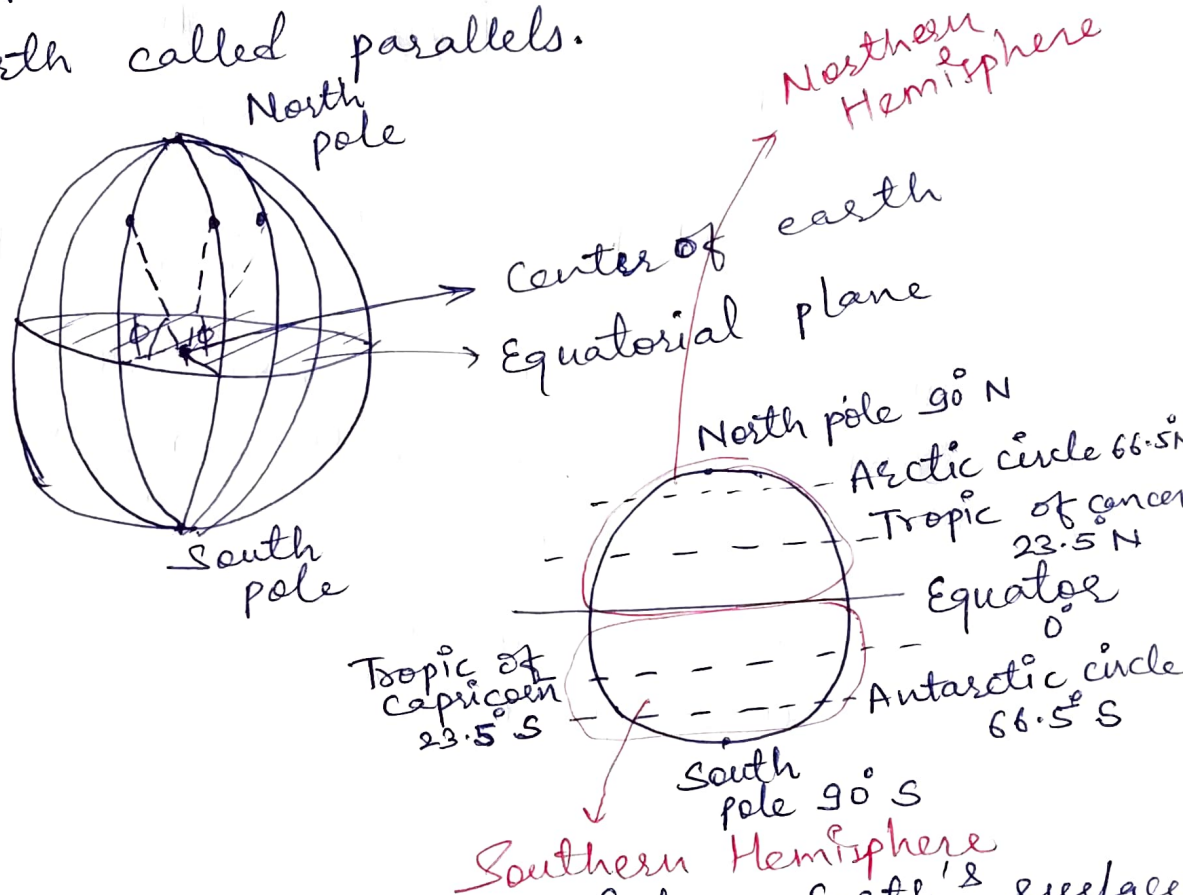 rth called parallels.
North
pole
Northern
Hemisphere
Center of earth
Equatorial plane
φ φ
South
pole
North pole 90° N
Arctic circle 66.5°N
Tropic of cancer
23.5° N
Equator
0°
Tropic of
capricorn
23.5° S
Antarctic circle
66.5° S
South
pole 90° S
Southern Hemisphere
's surface